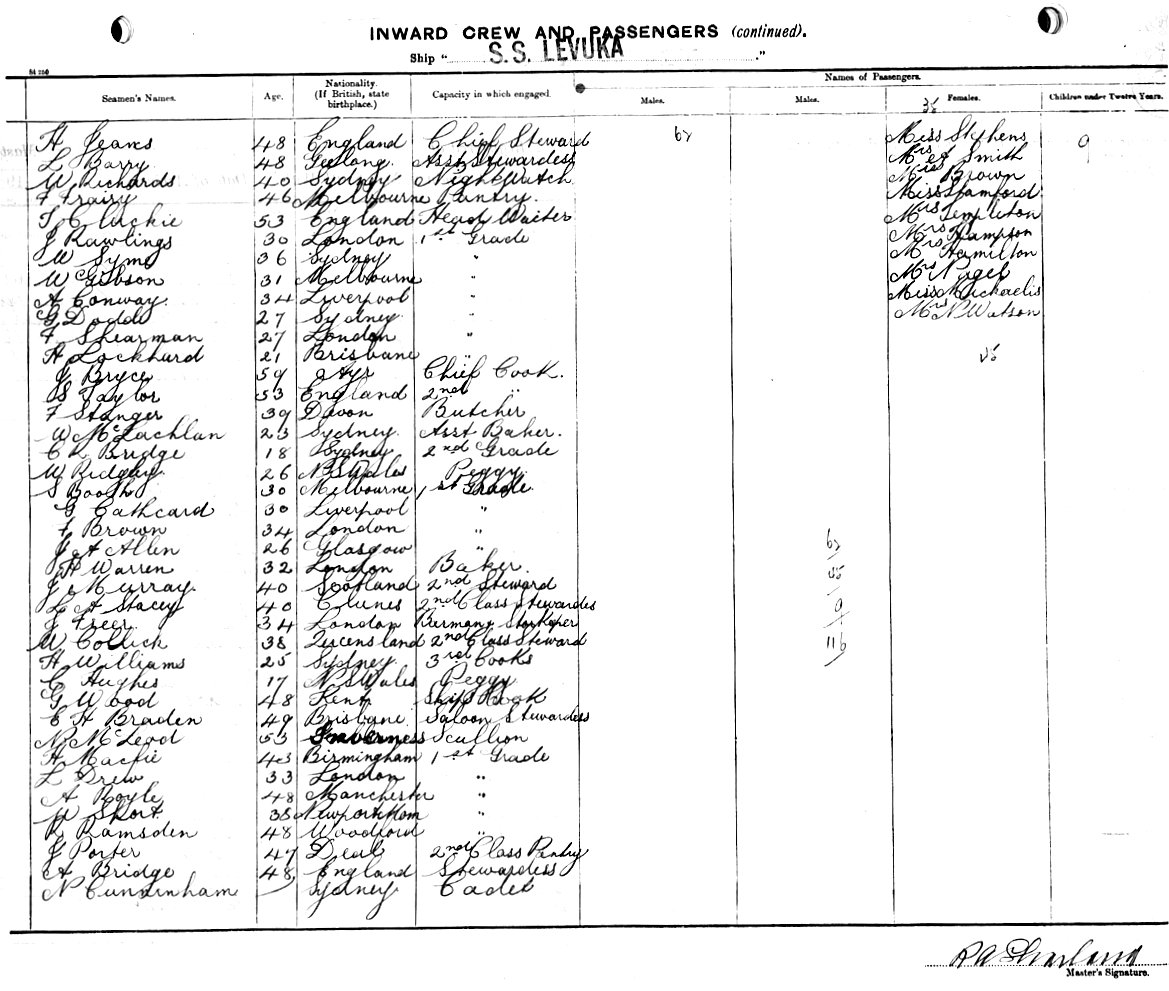 INWARD CREW AND PASSENGERS (continued).
Ship "S.S. LEVUKA"
84 250
Seamen's Names. Age. Nationality. (If British, state birthplace.) Capacity in which engaged. Names of Passengers.
Males. Males. Females. Children under Twelve Years.
H Jeans 48 England Chief Steward 67 Miss Stephens 9
L Barry 48 Geelong Asst Stewardess Mrs Smith
W Richards 40 Sydney Night Watch Mrs Brown
F 46 Melbourne Pantry. Miss Stamford
T C Luckie 53 England Head Waiter Mrs Templeton
J Rawlings 30 London 1st Grade Mrs Hampton
W Syme 36 Sydney " Mrs Hamilton
W Gibson 31 Melbourne " Mrs Nagel
A Conway. 34 Liverpool " Miss Michaelis
G Dodd 27 Sydney " Mrs N Watson
F Shearman 27 London "
A Lockhurd 21 Brisbane "
J Bryce 59 Ayr Chief Cook.
S Taylor 53 England 2nd "
F Stanger 39 Devon Butcher
W McLachlan 23 Sydney. Asst Baker.
C R Bridge 18 Sydney 2nd Grade
W Ridgley. 26 N S Wales Peggy
S Booth 30 Melbourne 1st Grade.
G Cathcard 30 Liverpool "
F Brown 34 London "
J A Allen 26 Glasgow "
H Warren 32 London Baker.
J Murray. 40 Scotland 2nd Steward
L A Stacey 40 Clunes 2nd Class Stewardess
J Freer 34 London
W Collick 38 Queensland 2nd Class Steward
H Williams 25 Sydney. 3rd Cooks
C Hughes 17 N S Wales Peggy
G Wood 48 Kent Ships Cook
E H Braden 49 Brisbane Saloon Stewardess
N McLeod 53 Inverness Scullion
H Macfie 43 Birmingham 1st Grade
L Drew 33 London "
A Boyle 48 Manchester "
W Short 38 Newport Mon "
R Ramsden 48 Woodford "
J Porter 47 Deal 2nd Class Pantry
A Bridge 48 England Stewardess
N Cunninham Sydney Cadet
Master's Signature.